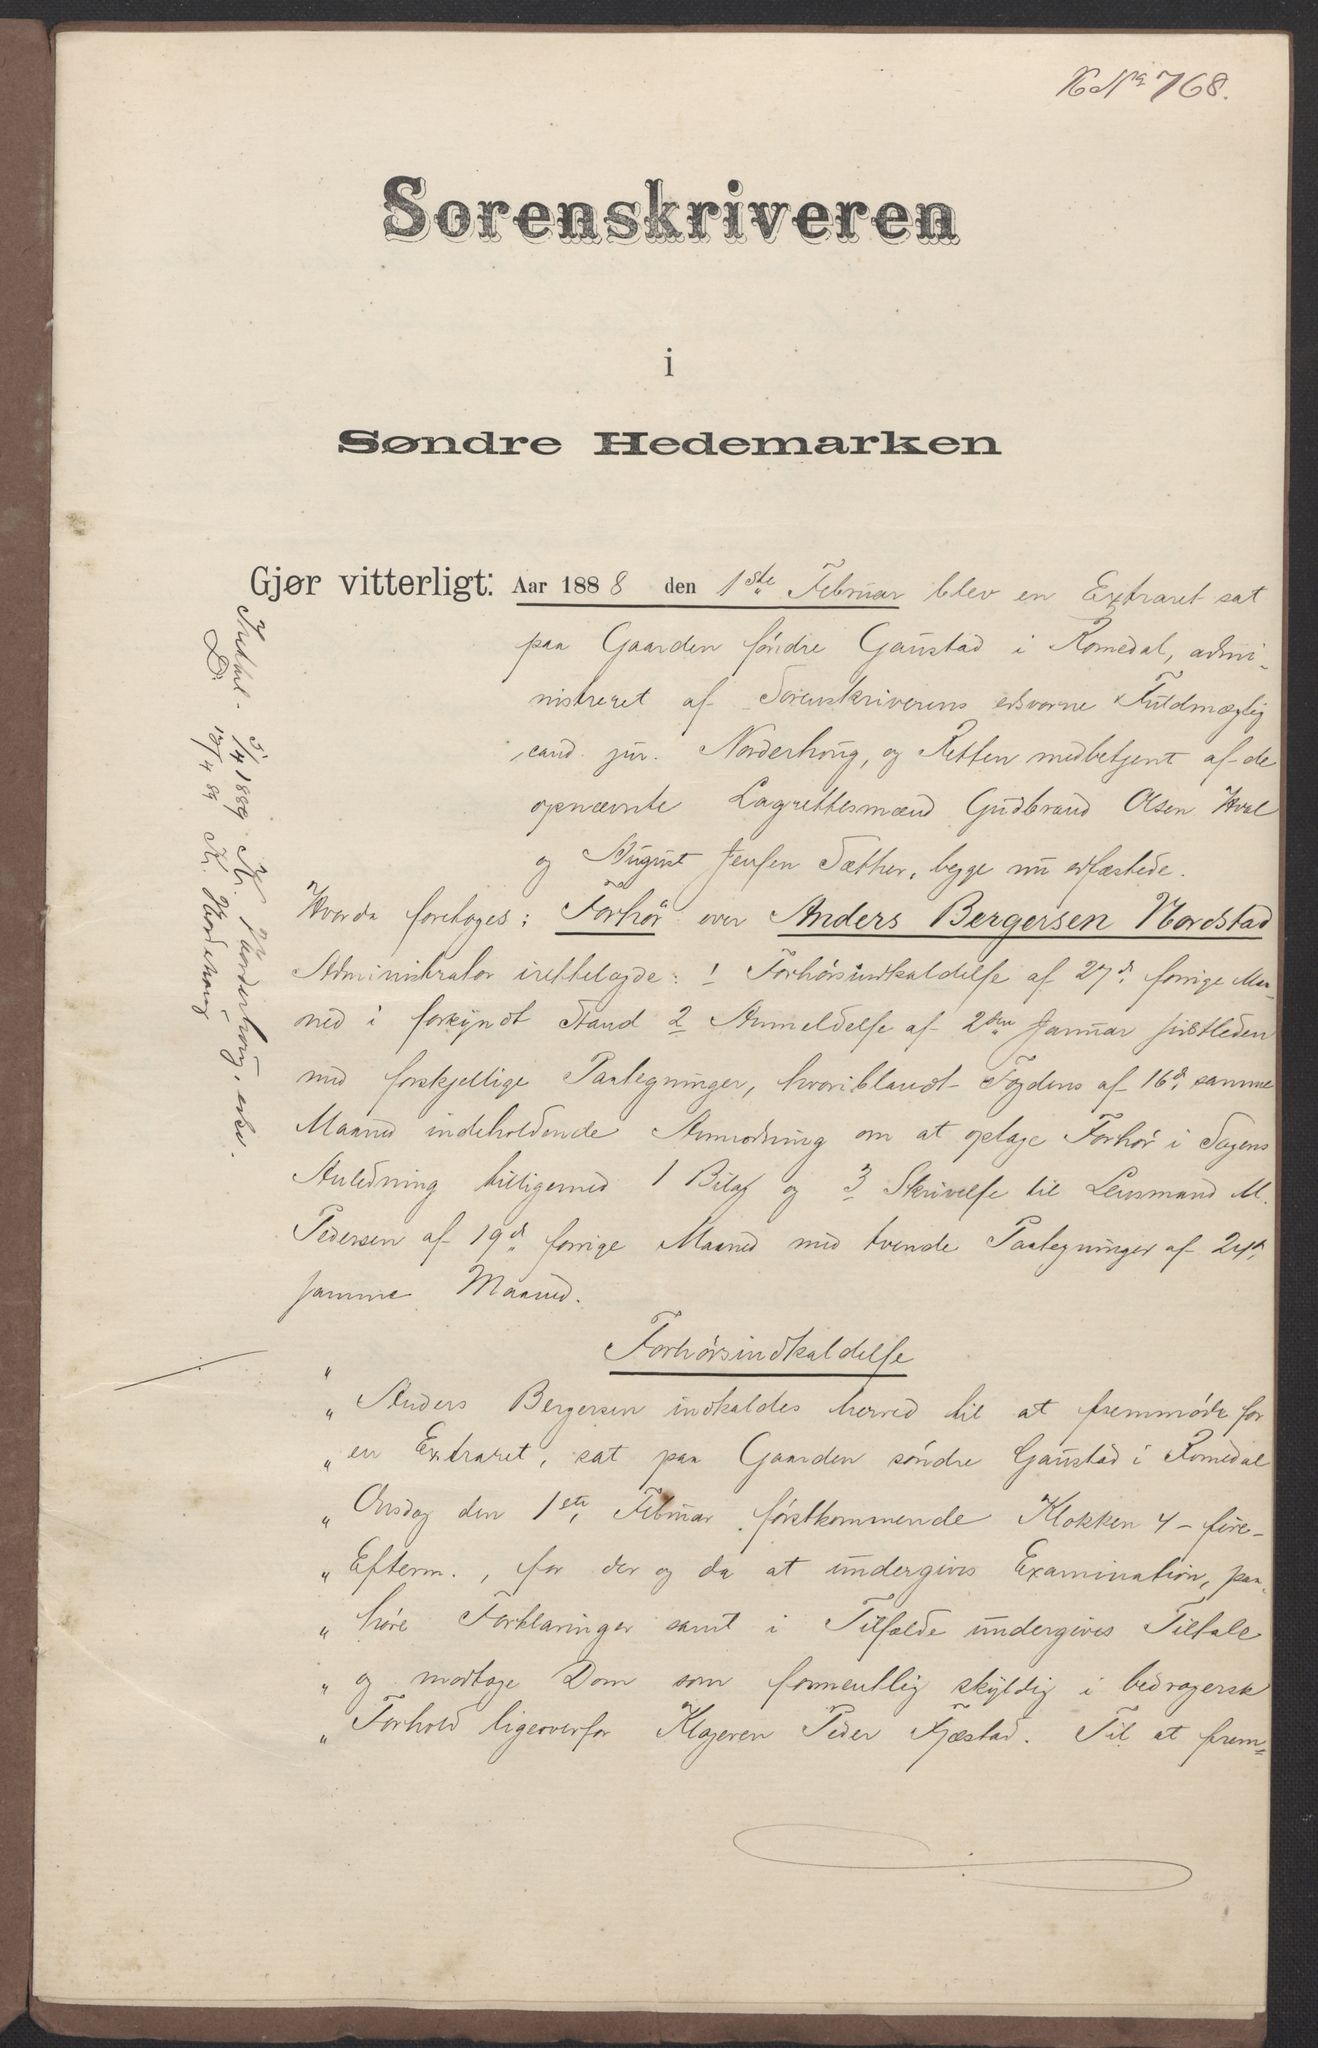 K № 768.
Sorenskriveren
i
Søndre Hedemarken
Gjør vitterligt: Aar 1888 den 1ste Februar blev en Extraret sat
paa Gaarden søndre Gaustad i Romedal, admi-
nistreret af Sorenskriverens edsvorne Fuldmægtig
cand. jur. Norderhoug, og Retten medbetjent af de
opnævnte Lagrettesmænd Gudbrand Olsen Hval
og August Jensen Sæther, begge nu edfæstede.
Hvorda foretoges: Forhør over Anders Bergersen Nordstad
Administrator irettelagde: 1 Forhørsindkaldelse af 27d. forrige Maa-
ned i forkyndt Stand 2 Anmeldelse af 2den Januar sidstleden
med forskjellige Paategninger, hvoriblandt Fogdens af 16d. samme
Maaned indeholdende Anmodning om at optage Forhør i Sagens
Anledning tilligemed 1 Bilag og 3 Skrivelse til Lensmand M.
Pedersen af 19d. forrige Maaned med tvende Paategninger af 24d.
samme Maaned.
" Forhørsindkaldelse
" Anders Bergersen indkaldes herved til at fremmøde for
" en Extraret, sat paa Gaarden søndre Gaustad i Romedal
" Onsdag den 1ste Februar førstkommende Klokken 4 - fire -
" Efterm., for der og da at undergives Examination, paa-
" høre Forklaringer samt i Tilfælde undergives Tiltale
" og modtage Dom som formentlig skyldig i bedragersk
" Forhold ligeoverfor Klageren Peder Fjæstad. Til at frem-
5/4 1889 N. Norderhoug, edsv.
D. 13/4 89 N. Norderhoug